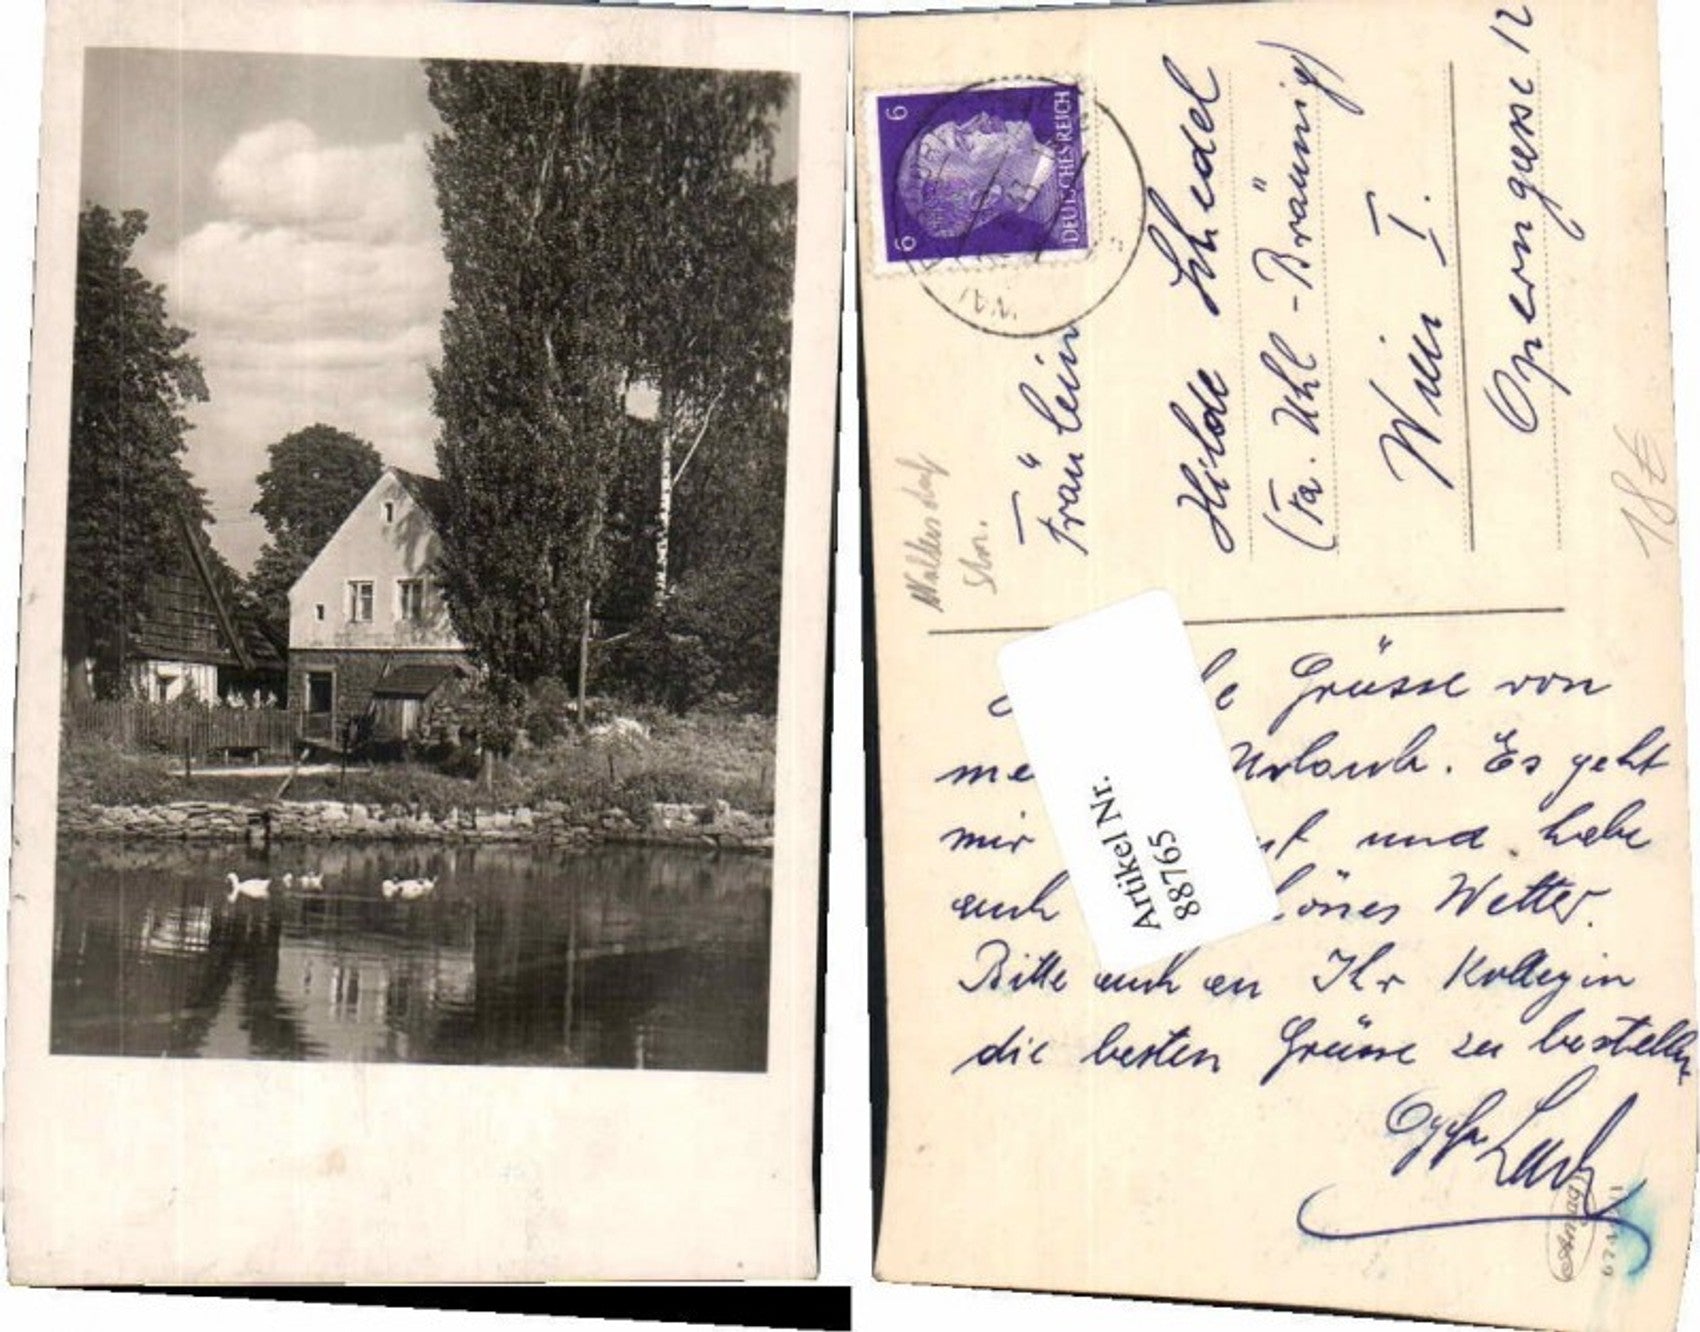 6
6
DEUTSCHES REICH
Fräulein
Hilde Schedel
(Fa. Uhl-Bräunig)
Wien I.
Operngasse 12
18€
Grüsse von
Urlaub. Es geht
mir und habe
auch Wetter.
Bitte auch an Ihr Kollegin
die besten Grüsse zu bestellen
Artikel Nr.
88765
Amag